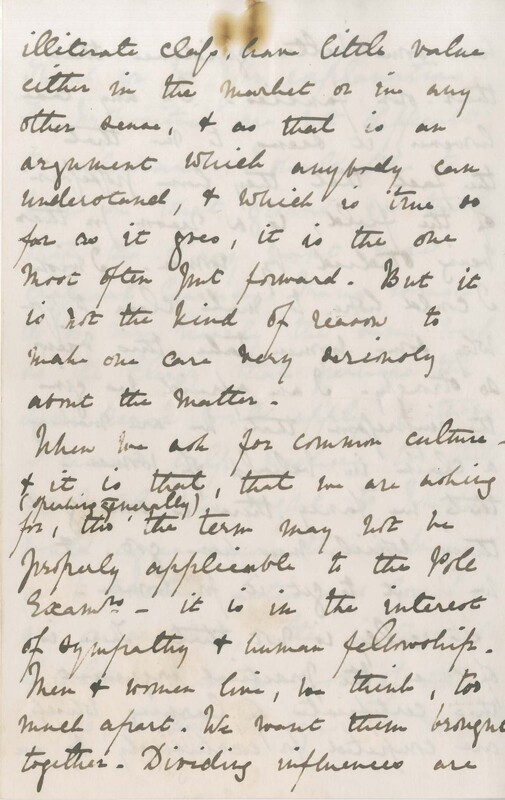 illiterate class, have little value
either in the market or in any
other sense, & as that is an
argument which anybody can
understand, & which is true so
far as it goes, it is the one
most often put forward. But it
is not the kind of reason to
make one care very seriously
about the matter.
When we ask for common culture -
& it is that, that we are asking
(speaking generally)
for, tho' the term may not be
properly applicable to the Pole
Examns - it is in the interest
of sympathy & human fellowship.
Men & women live, we think, too
much apart. We want them brought
together. Dividing influences are